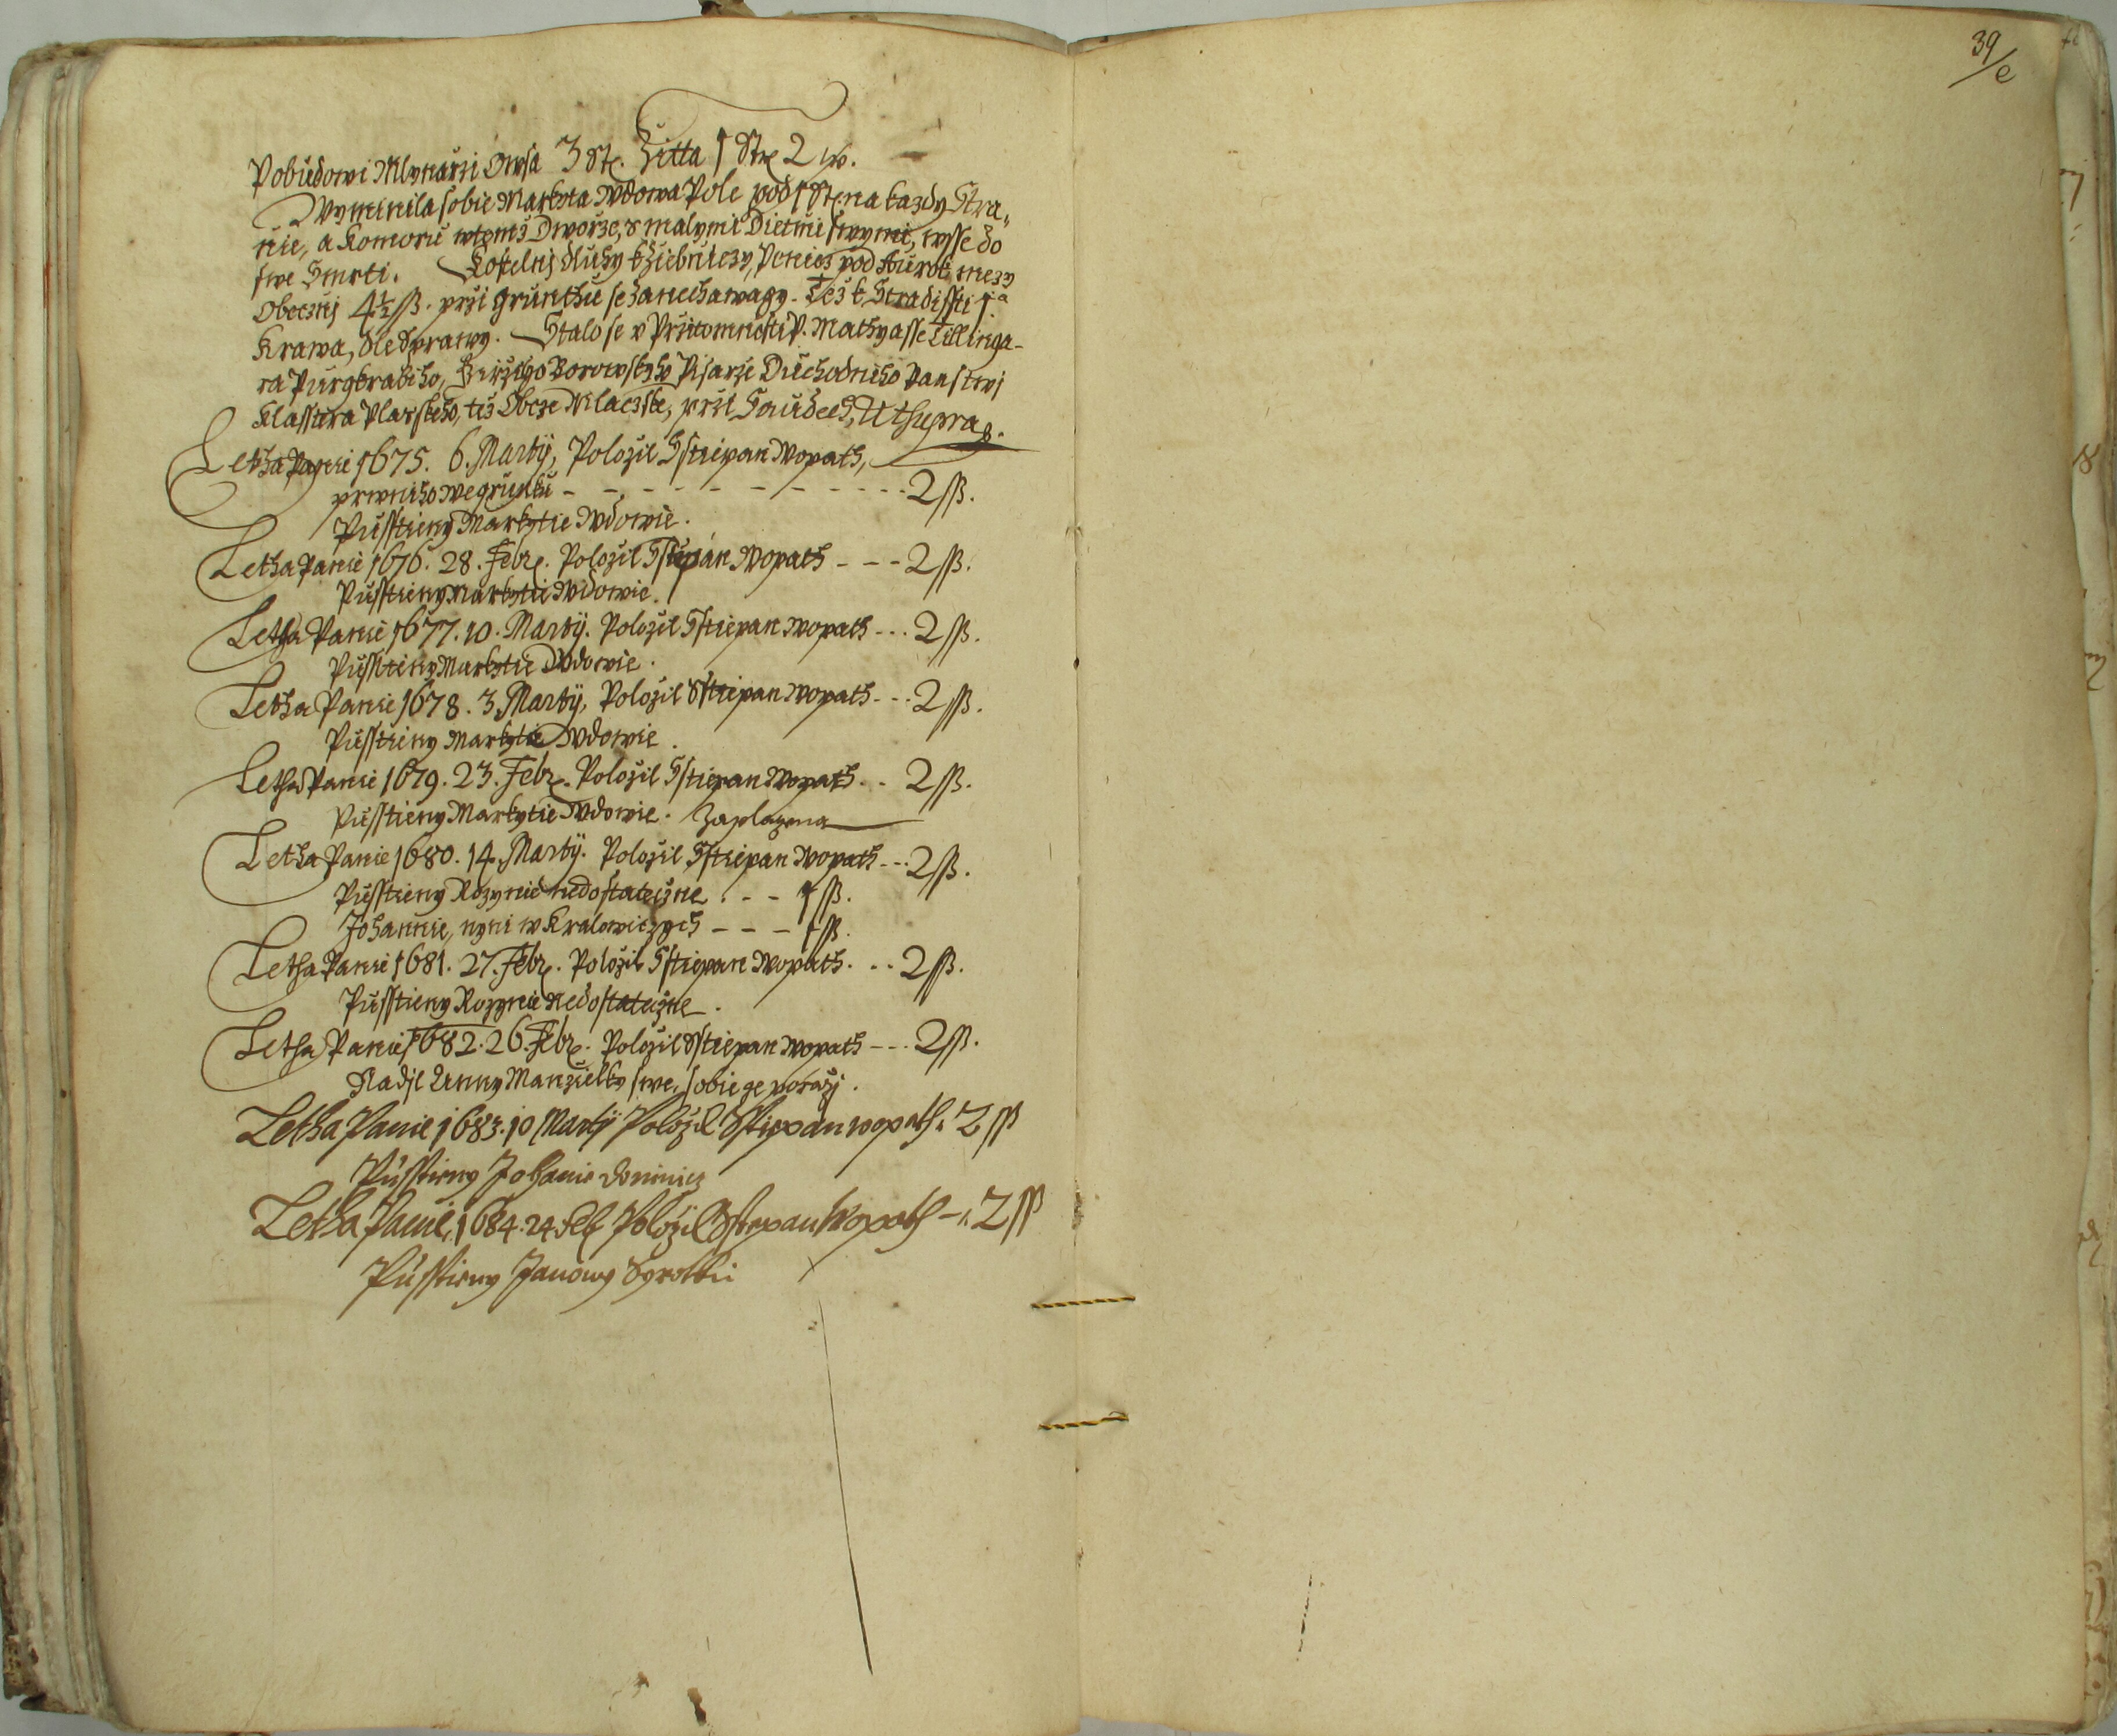 39/e
Pobudowi Mlynarzi Owsa 3 Str. Zitta 1 Str 2 w.
Wyminila sobie Markyta Wdowa Pole pod 1 Str. na kazdy Stra„
nie, a Komoru wtemž Dworze, s malymi Dietmi swymi, wsse do
swe Smrti. Kostelnj dluhy k Ziebniczy, Peniez pod Aurok mezy
Obecznj 4½ ß. przi grunthu se zanechawagy. Tež k Stradissti 1.a
Krawa, dle Sprawy. Stalo se v Przitomnosti P. Mathyasse Tillinga-
ra Purgkrabiho, Girziho Borowskyho Pisarze Duchodniho Panstwj
Klasstera Plaskeho, též Obcze Mlaczske, przi Saudech, Ut supra.
Letha Panie 1675. 6. Martij, Polozil Sstiepan Wopath,
prwniho We gruntu - - - - - - - - - 2 ß.
Pusstieny Markytie Wdowie.
Letha Panie 1676. 28. Febr. Polozil Sstiepan Wopath - - - 2 ß.
Pusstieny Markytie Wdowie.
Letha Panie 1677. 10. Martij. Polozil Sstiepan Wopath - - - 2 ß.
Pusstieny Markytie Wdowie.
Letha Panie 1678. 3. Martij, Polozil Sstiepan Wopath - - - 2 ß.
Pusstieny Markytie Wdowie.
Letha Panie 1679. 23. Febr. Polozil Sstiepan Wopath - - 2 ß.
Pusstieny Markytie Wdowie. Zaplazena
Letha Panie 1680. 14. Martij. Polozil Sstiepan Wopath - - - 2 ß.
Pusstieny Rozynie nedostateczne - - - 1 ß.
Johannie, nyni w Kralowiczych - - - 1 ß.
Letha Panie 1681. 27. Febr. Polozil Sstiepan Wopath - - - 2 ß.
Pusstieny Rozynie Nedostateczne.
Letha Panie 1682. 26. Febr. Polozil Sstiepan Wopath - - - 2 ß.
Nadjl Anny Manzielky swe, sobie ge porazj.
Letha Panie 1683. 10 Martij Polozil Sstiepan wopath. 2 ß
Pusstieny Johanie
Letha Panie, 1684. 24. Feb Polozil Sstiepan Wopath - 2 ß
Pusstieny Janowy Syrotku